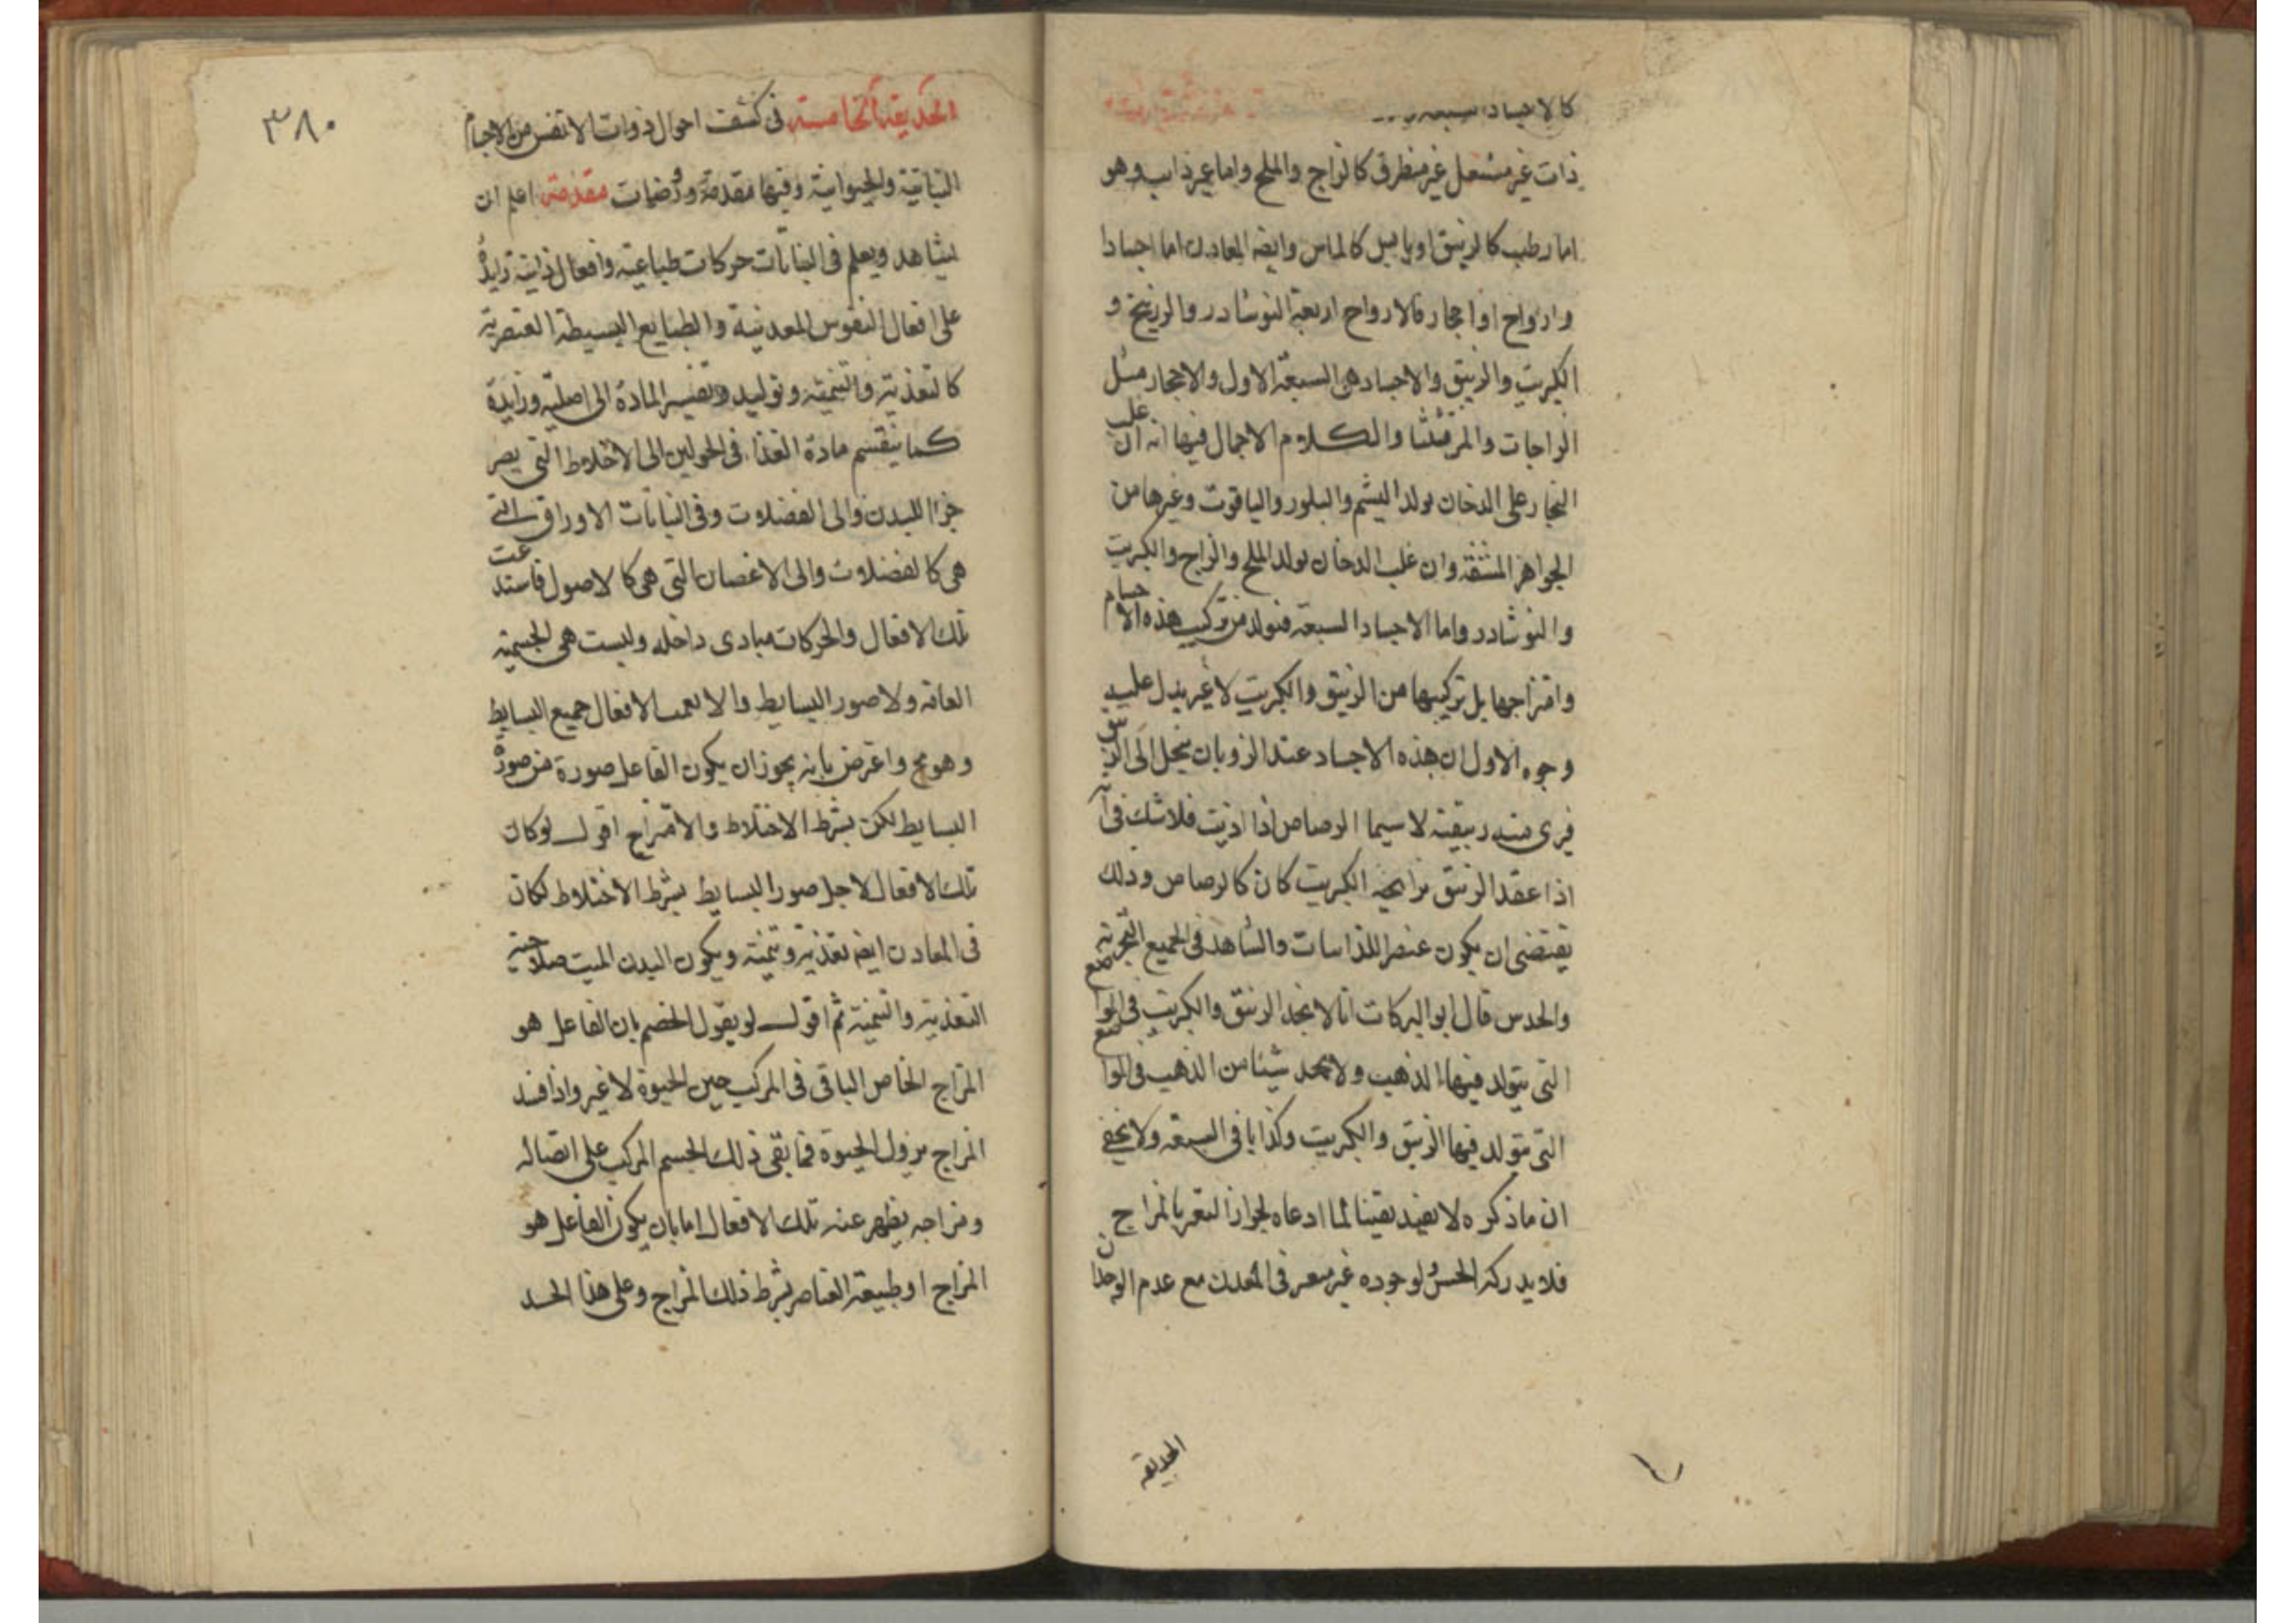 كالاجساد السبعة
ذات غير مشتعل غير منطرق كالزاج والملح واما غير ذايب وهو
اما رطب كالزيبق او يابس كالماس وايضا المعادن اما اجسادا
وارواح او احجار فالارواح اربعة النوشادر والزرنيخ و
الكبريت والزيبق والاجساد هى السبعة الاول والاحجار مثل
الزاجات والمرقشثا والكلام الاجمال فيها انه ان غلب
البخار على الدخان تولد اليشم والبلور والياقوت وغيرها من
الجواهر المشفة وان غلب الدخان تولد الملح والزاج والكبريت
والنوشادر واما الاجساد السبعة فتولد من تركيب هذه الاجسام
وامتزاجها بل تركيبها من الزيبق والكبريت لا غير يدل عليه
وجوه الاول ان هذه الاجساد عند الذوبان ينحل الى الزيبق
فيرى منه زيبقية لا سيما الرصاص اذا اذيب فلا شك فى انه
اذا عقد الزيبق برايحة الكبريت كان كالرصاص وذلك
يقتضى ان يكون عنصر للذايبات والشاهد فى الجميع التجربة
والحدس قال ابو البركات انا لا نجد الزيبق والكبريت فى المواضع
التى يتولد فيها الذهب ولا نجد شيئا من الذهب فى المواضع
التى يتولد فيها الزيبق والكبريت وكذا باقى السبعة ولا يخفى
ان ما ذكره لا يفيد يقينا لما ادعاه لجواز التغير بالمزاج
فلا يدركه الحس ولوجوده غير فى المعدن مع عدم الوجدان
الحديقة
٣٨٠
الحديقة الخامسة فى كشف احوال ذوات الانفس من الاجسام
النباتية والحيوانية وفيها مقدمة وروضات مقدمة اعلم ان
يشاهد ويعلم فى النباتات حركات طباعية وافعال ذاتية زايدة
على افعال النفوس المعدنية والطبايع البسيطة العنصرية
كالتغذية والتنمية وتوليد وتقسيم المادة الى اصلية وزايدة
كما ينقسم مادة الغذا فى الحولين الى الاخلاط التى يصير
جزا للبدن والى الفضلات وفى النباتات الاوراق التى
هى كالفضلات والى الاغصان التى هى كالاصول فاستدعت
تلك الافعال والحركات مبادى داخله وليست هى الجسمية
العامة ولا صور البسايط والا لعمت الافعال جميع البسايط
وهو مح واعترض بانه يجوز ان يكون الفاعل صورة من صور
البسايط لكن بشرط الاختلاط والامتزاج اقول لو كان
تلك الافعال لاجل صور البسايط بشرط الاختلاط لكان
فى المعادن ايضا تغذية وتنمية ويكون البدن الميت صلاحية
التغذية والتنمية ثم اقول لو يقول الخصم بان الفاعل هو
المزاج الخاص الباقى فى المركب حين الحيوة لا غير واذا فسد
المزاج يزول الحيوة فما بقى ذلك الجسم المركب على اتصاله
ومزاجه يظهر عنه تلك الافعال اما بان يكون الفاعل هو
المزاج او طبيعة العناصر بشرط ذلك المزاج وعلى هذا الحد